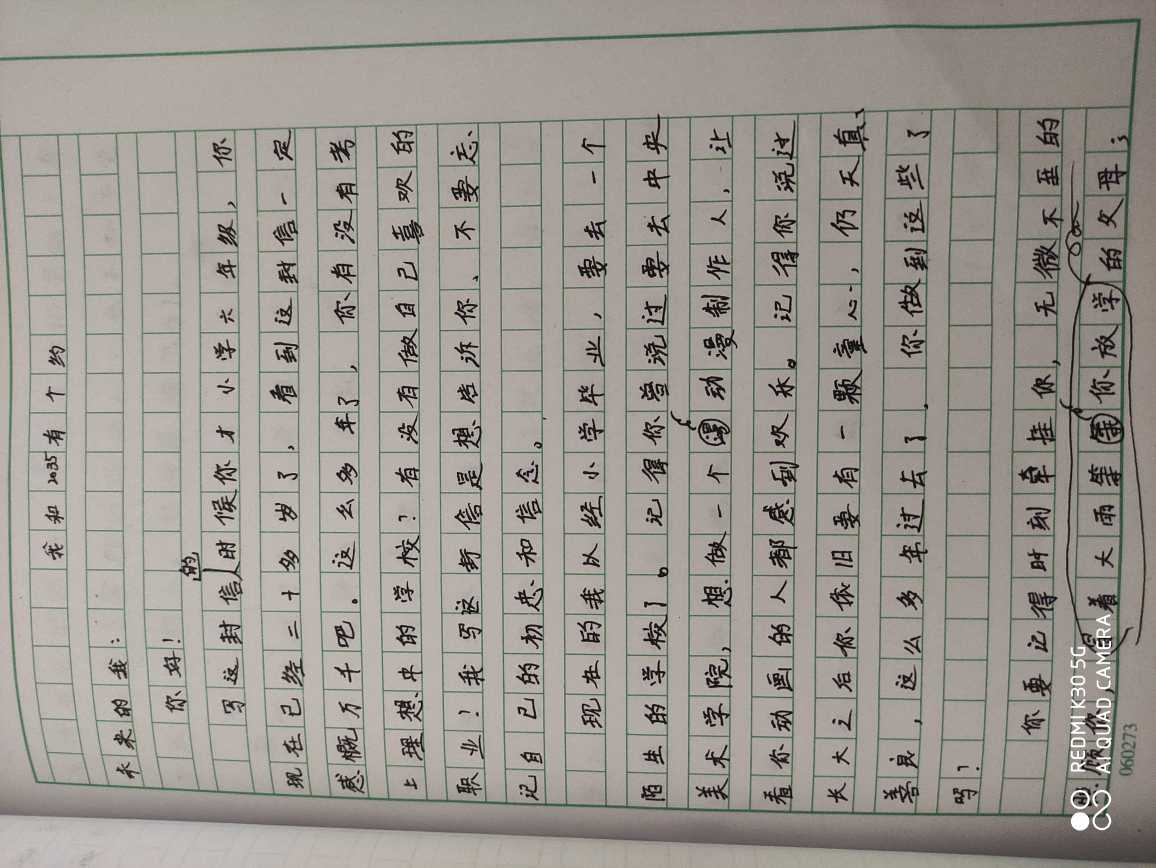 我和2035有个约
未来的我：
你好！
写这封信的时候你才小学六年级，你
现在已经二十多岁了，看到这封信一定
感概万千吧。这么多年了，你有没有考
上理想中的学校？有没有做自己喜欢的
职业！我写这封信是想告诉你、不要忘
记自已的初忠和信念。
现在的我以经小学毕业，要去一个
陌生的学校了。记得你曾说过要去中央
美术学院，想做一个动漫制作人，让
看你动画的人都感到欢乐。记得你说过
长大之后你依旧要有一颗童心，仍天真、
善良，这么多年过去了．你做到这些了
吗？
你要记得时刻牵挂你，无微不至的
你，冒着大雨等你放学的父母；
REDMI K30 5G
AI QUAD CAMERA
060273